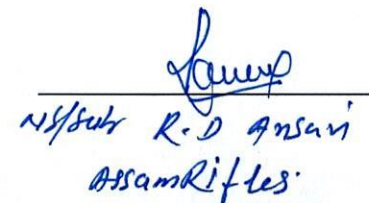 NS/Sub R.D Ansari
Assam Rifles.